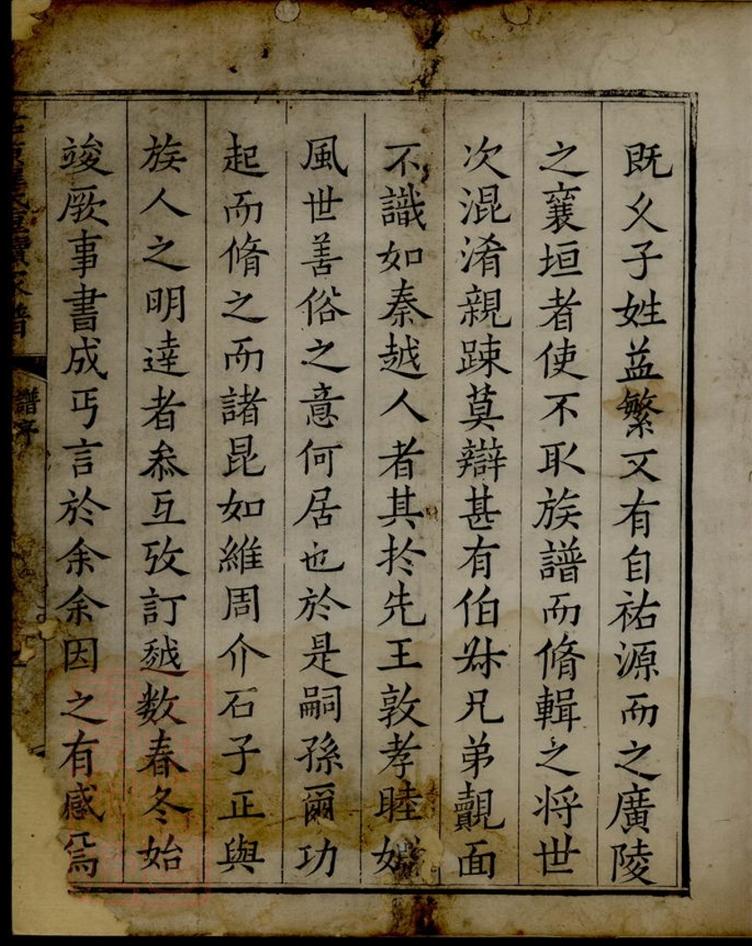 既父子姓益繁又有自祐源而之廣陵
之襄垣者使不取族譜而脩輯之将世
次混淆親踈莫辯甚有伯叔兄弟覿面
不識如秦越人者其扵先王敦孝睦婣
風世善俗之意何居也於是嗣孫爾功
起而脩之而諸昆如維周介石子正與
族人之明達者叅互攷訂越数春冬始
竣厥事書成丐言於余余因之有感焉
譜序